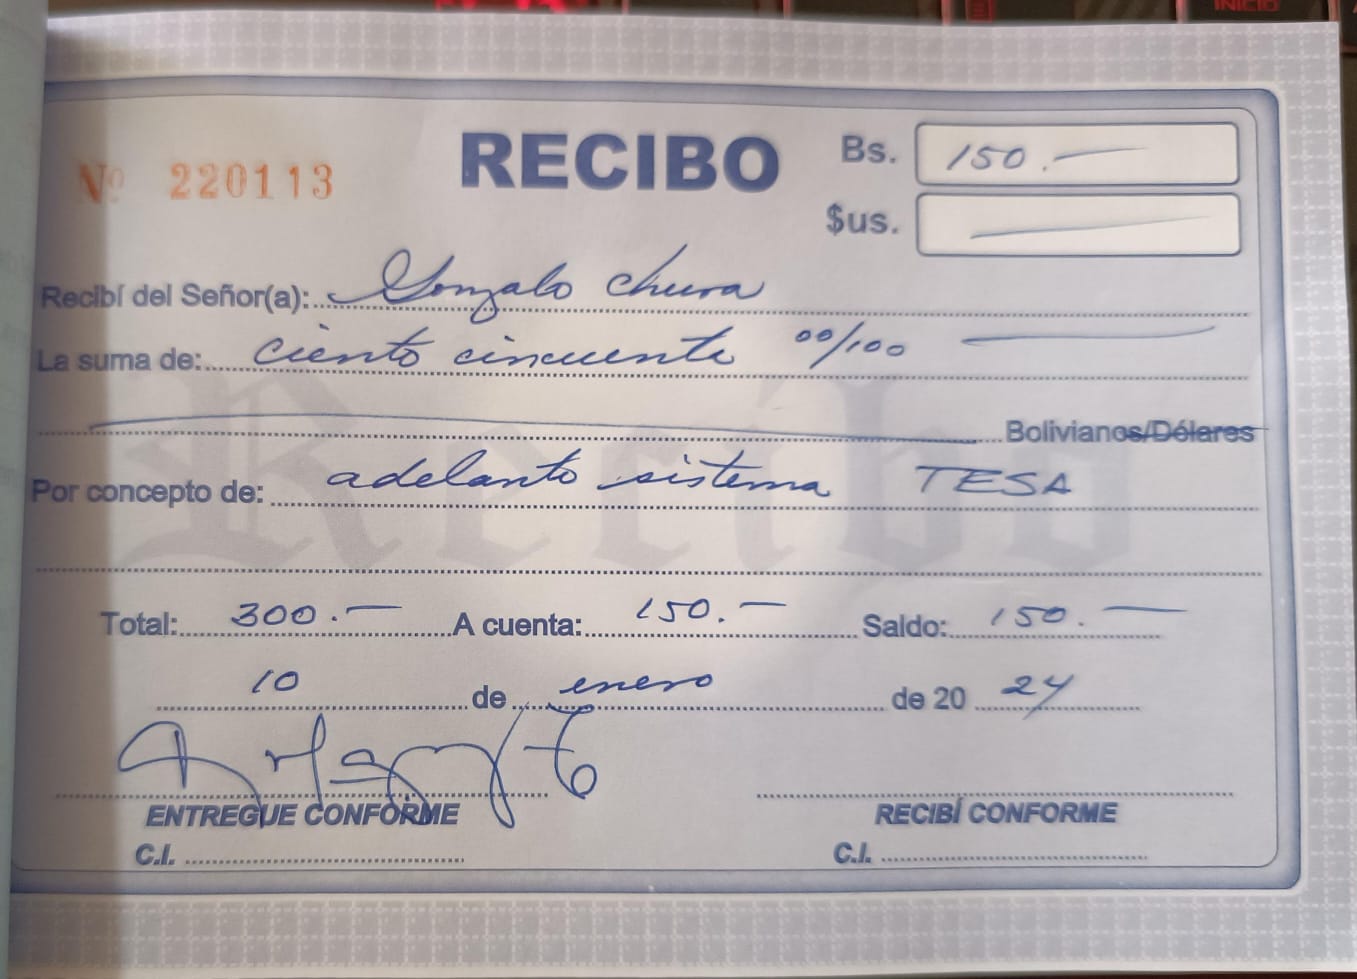 INICIO
RECIBO
Nº 220113
Bs. 150.-
$us.
Recibí del Señor(a): Gonzalo Chura
La suma de: ciento cincuenta 00/100
Bolivianos/Dólares
Por concepto de: adelanto sistema TESA
Recibo
Total: 300.- A cuenta: 150.- Saldo: 150.-
10 de enero de 20 24
ENTREGUE CONFORME RECIBÍ CONFORME
C.I. C.I.